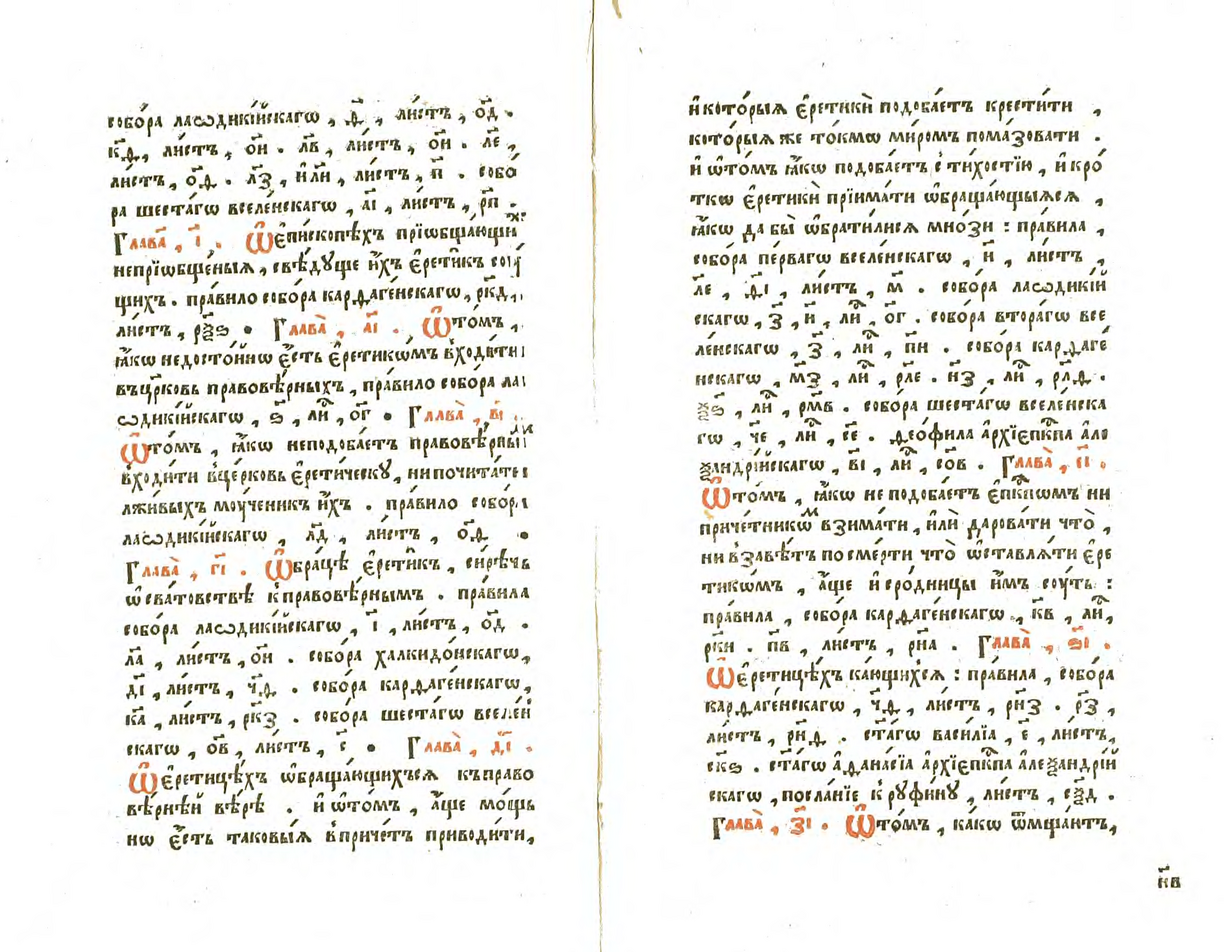 собо́ра лаѡдикі́йскагѡ , ѳ҃ , ли́стъ , о҃д .
к҃ѳ , ли́стъ , о҃и . л҃в , ли́стъ , о҃и . л҃е ,
ли́стъ , о҃ѳ . л҃з , и҆лѝ , ли́стъ , п҃ . собо́
ра шеста́гѡ вселе́нскагѡ , а҃і , ли́стъ , р҃п .
Глава̀ , і҃ . Ѡ҆ є҆пи́скопѣхъ прїѡбща́ющих
непрїѡбще́ныѧ , свѣ́дꙋще и҆́хъ є҆рети́к сꙋ́
щихъ . пра́вило собо́ра карѳаге́нскагѡ , р҃кд ,
ли́стъ , р҃ѯѕ . Глава̀ , а҃і . Ѡ҆ то́мъ ,
ꙗ҆́кѡ недосто́йнѡ є҆́сть є҆ретикѡ́мъ входи́ти
въ цр҃ковь правовѣ́рныхъ , пра́вило собо́ра ла
ѡдикі́йскагѡ , ѕ҃ , лиⷭ҇ , о҃г . Глава̀ , в҃і .
Ѡ҆ то́мъ , ꙗ҆́кѡ неподоба́етъ правовѣ́рным
входи́ти вце́рковь є҆рети́ческꙋ , ни почита́ти
лжи́выхъ моу́ченикъ и҆́хъ . пра́вило собо́ра
лаѡдикі́йскагѡ , л҃д , ли́стъ , о҃ѳ .
Глава̀ , г҃і . Ѡ҆ бра́цѣ є҆рети́к , си́рѣчь
ѡ҆ сва́товствѣ к правовѣ́рнымъ . пра́вила
собо́ра лаѡдикі́йскагѡ , і҃ , ли́стъ , о҃д .
л҃а , ли́стъ , о҃и . собо́ра халкидо́нскагѡ ,
д҃і , ли́стъ , ч҃ѳ . собо́ра карѳаге́нскагѡ ,
к҃а , ли́стъ , р҃кз . собо́ра шеста́гѡ вселе́н
скагѡ , о҃в , ли́стъ , с҃ . Глава̀ , д҃і .
Ѡ҆ є҆рети́цѣхъ ѡ҆браща́ющихъсѧ къ право
вѣ́рнѣй вѣ́рѣ . и҆ ѡ҆ то́мъ , а҆́ще мо́щь
нѡ є҆́сть таковы́ѧ в при́четъ приводи́ти ,
и҆ кото́рыѧ є҆ретикѝ подоба́етъ крести́ти ,
кото́рыѧ же то́кмѡ мѵ́ромъ пома́зовати .
и҆ ѡ҆ то́мъ ꙗ҆́кѡ подоба́етъ с ти́хостїю , и҆ кро́
ткѡ є҆ретикѝ прїима́ти ѡ҆браща́ющыѧсѧ ,
ꙗ҆́кѡ да бы̀ ѡ҆брати́лисѧ мно́зи : пра́вила ,
собо́ра пе́рвагѡ вселе́нскагѡ , и҃ , ли́стъ ,
л҃е , ѳ҃і , ли́стъ , м҃ . собо́ра лаѡдикі́й
скагѡ , з҃ , и҃ , лиⷭ҇ , о҃г . собо́ра втора́гѡ все
ле́нскагѡ , з҃ , лиⷭ҇ , п҃и . собо́ра карѳаге́
нскагѡ , м҃з , лиⷭ҇ , р҃ле . н҃з , лиⷭ҇ , р҃лѳ .
ѯ҃ѕ , лиⷭ҇ , р҃мв . собо́ра шеста́гѡ вселе́нска
гѡ , ч҃е , лиⷭ҇ , с҃е . ѳео́фила а҆рхїепⷭ҇кпа але
ѯандрі́йскагѡ , в҃і , лиⷭ҇ , с҃ов . Глава̀ , є҃і .
Ѡ҆ то́мъ , ꙗ҆́кѡ не подоба́етъ є҆пⷭ҇кпѡмъ ни
приче́тникѡм взима́ти , и҆лѝ дарова́ти что̀ ,
ни в завѣ́тъ по сме́рти что̀ ѡ҆ставлѧ́ти є҆ре
тикѡ́мъ , а҆́ще и҆ сро́дницы и҆̀мъ соу́ть :
пра́вила , собо́ра карѳаге́нскагѡ , к҃в , лиⷭ҇ ,
р҃ки . п҃в , ли́стъ , р҃на . Глава̀ , ѕ҃і .
Ѡ҆ є҆рети́цѣхъ ка́ющихсѧ : пра́вила , собо́ра
карѳаге́нскагѡ , ч҃ѳ , ли́стъ , р҃нз . р҃з ,
ли́стъ , р҃нѳ . ст҃а́гѡ васи́лїа , є҃ , ли́стъ ,
с҃кѕ . ст҃а́гѡ а҆ѳана́сїа а҆рхїепⷭ҇кпа алеѯандрі́й
скагѡ , посла́нїе к рꙋфи́нꙋ , ли́стъ , с҃ѯд .
Глава̀ , з҃і . Ѡ҆ то́мъ , ка́кѡ ѿмща́итъ ,
к҃в